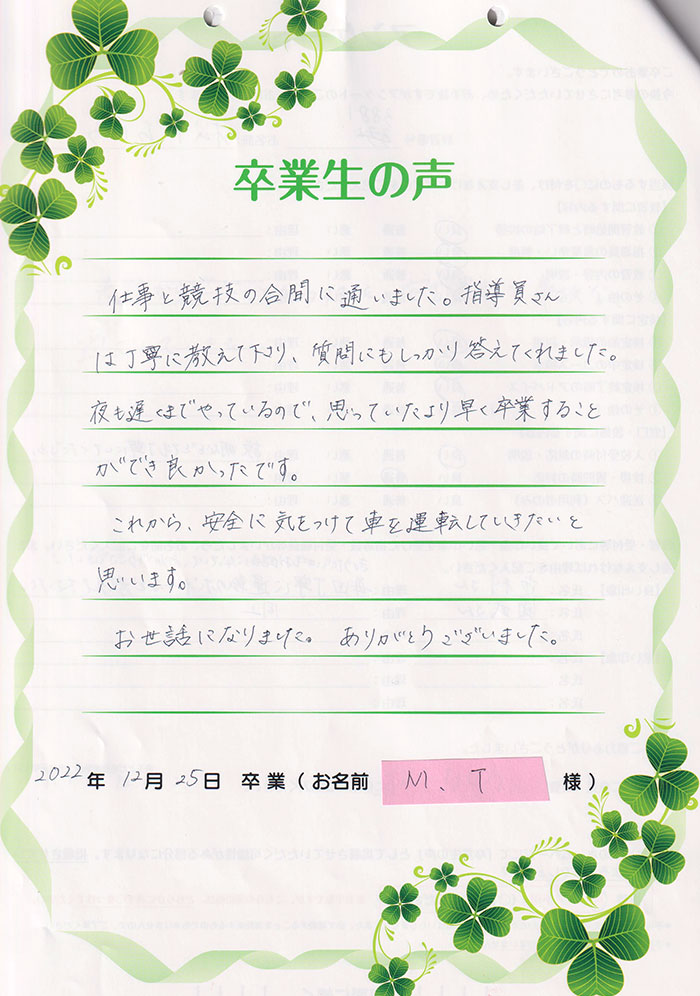 卒業生の声
仕事と競技の合間に通いました。指導員さん
は丁寧に教えて下さり、質問にもしっかり答えてくれました。
夜も遅くまでやっているので、思っていたより早く卒業すること
ができ良かったです。
これから、安全に気をつけて車を運転していきたいと
思います。
お世話になりました。 ありがとうございました。
2022年 12月 25日 卒業(お名前 M、T 様)